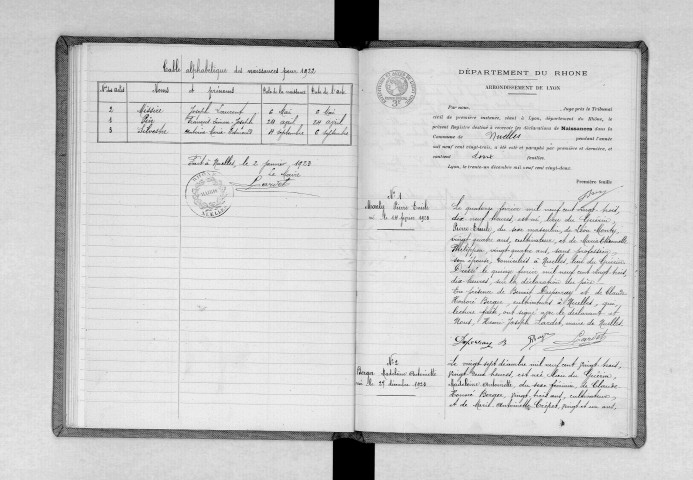 Table alphabétique des naissances pour 1922
Nos des actes Noms et prénoms Date de la naissance Date de l'acte
2 Missire Joseph Laurent 6 Mai 6 Mai
1 Rey François Simon Joseph 24 avril 24 avril
3 Silvestre Antoine Marie Edouard 4 septembre 6 septembre
Fait à Nuelles, le 2 janvier 1923
Le Maire
Lardet
DÉPARTEMENT DU RHONE
ARRONDISSEMENT DE LYON
Par nous, Juge près le Tribunal
civil de première instance, séant à Lyon, département du Rhône, le
présent Registre destiné à recevoir les déclarations de Naissances dans la
Commune de Nuelles pendant l'année
mil neuf cent vingt-trois, a été coté et paraphé par première et dernière, et
contient feuillets.
Lyon, le trente-un décembre mil neuf cent vingt-deux.
Première feuille
N° 1
Pierre Emile
né le 14 février 1923
Le quatorze février mil neuf cent vingt trois,
dix neuf heures, est né, lieu du Guérin,
Pierre Emile, du sexe masculin, de Léon
vingt quatre ans, cultivateur, et de Marie
Philippon, vingt quatre ans, sans profession,
son épouse, domiciliés à Nuelles, lieu du Guérin.
Dressé le quinze février mil neuf cent vingt trois,
dix heures, sur la déclaration du père.
En présence de Benoit et de Claude
Honoré Berger, cultivateurs à Nuelles, qui,
lecture faite, ont signé avec le déclarant et
Nous, Joseph Lardet, maire de Nuelles.
Lardet
N° 2
Berger Madeleine Antoinette
née le 27 décembre 1923
Le vingt sept décembre mil neuf cent vingt trois,
vingt heures, est née lieu du Guérin,
Madeleine Antoinette, du sexe féminin, de Claude
Honoré Berger, vingt huit ans, cultivateur,
et de Marie Antoinette Crépet, vingt et un ans,